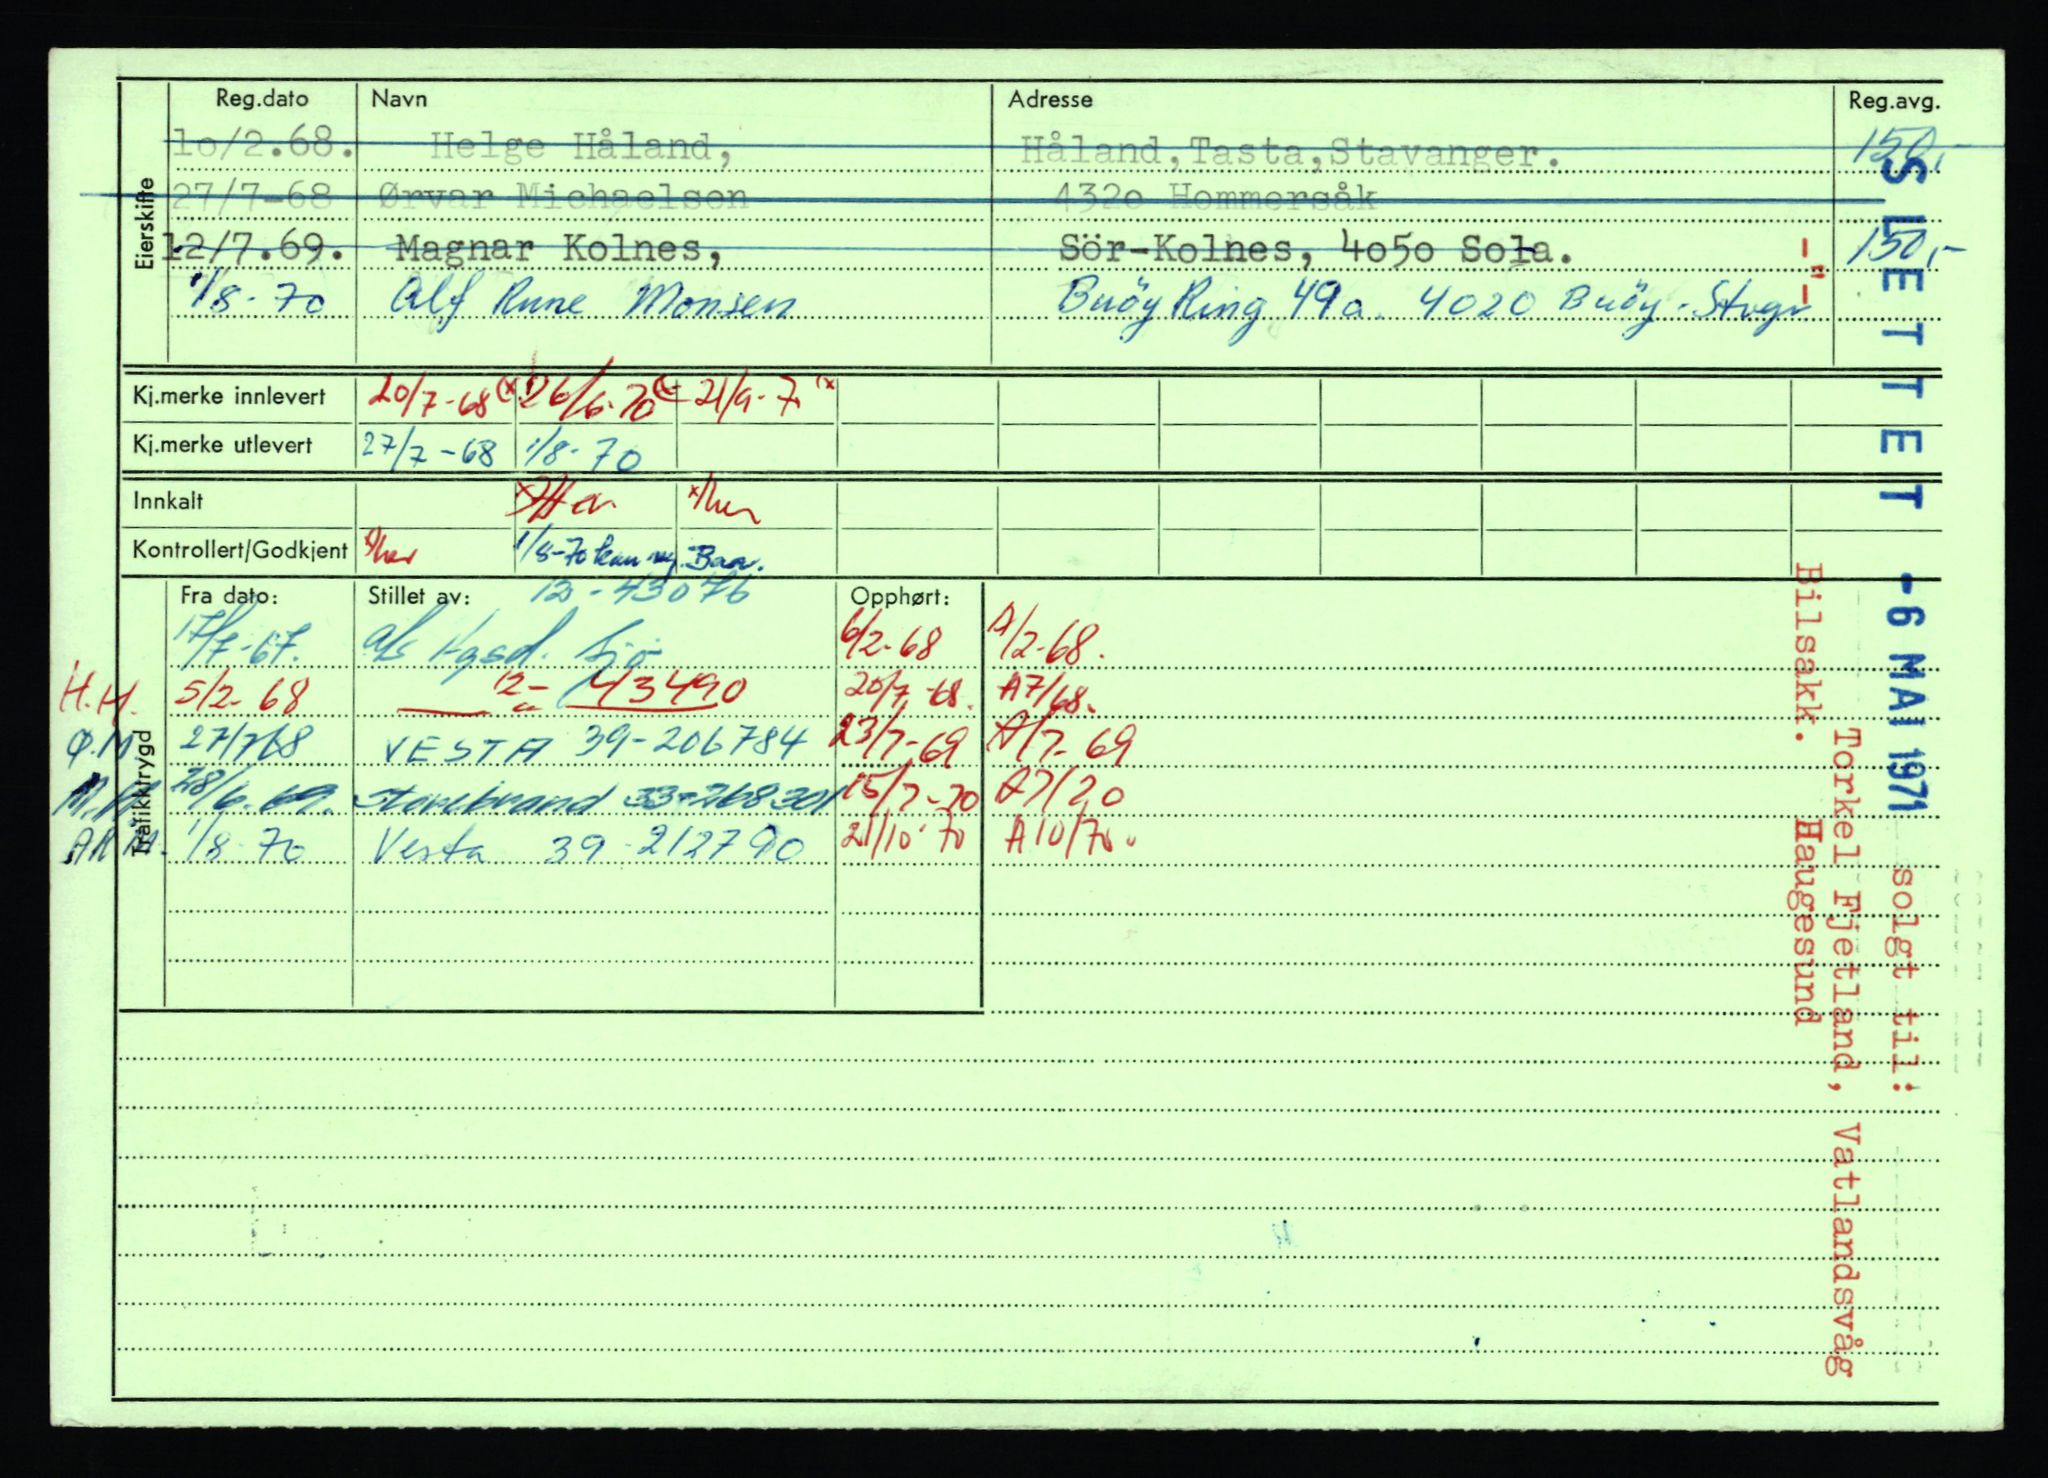 Reg.dato Navn Adresse Reg.avg.
Eierskifte
10/2.68. Helge Håland, Håland,Tasta,Stavanger. 150,-
27/7-68 Ørvar Michaelsen 4320 Hommersåk
12/7.69. Magnar Kolnes, Sör-Kolnes, 4o5o Sola. -"- 150,-
1/8-70 Alf Rune Monsen Buöy Ring 49a. 4020 Buöy-Stvgr
Kj.merke innlevert 20/7-68 (x 26/6-70 21/9-7
Kj.merke utlevert 27/7-68 1/8-70
Innkalt
Kontrollert/Godkjent 1/8-70
Trafikktrygd
Fra dato: Stillet av: 12-43076 Opphørt:
17/7-67. 6/2-68 A/2-68.
H.H. 5/2-68 12-43490 20/7-68. A7/68.
Ø.M 27/7 68 VESTA 39-206784 23/7-69 A/7-69
28/6-69. Storebrand 33-268301 15/7-70 A7/70
ARM. 1/8-70 Vesta 39-212790 21/10-70 A10/70.
SLETTET -6 MAI 1971 solgt til:
Torkel Fjetland, Vatlandsvåg
Bilsakk. Haugesund